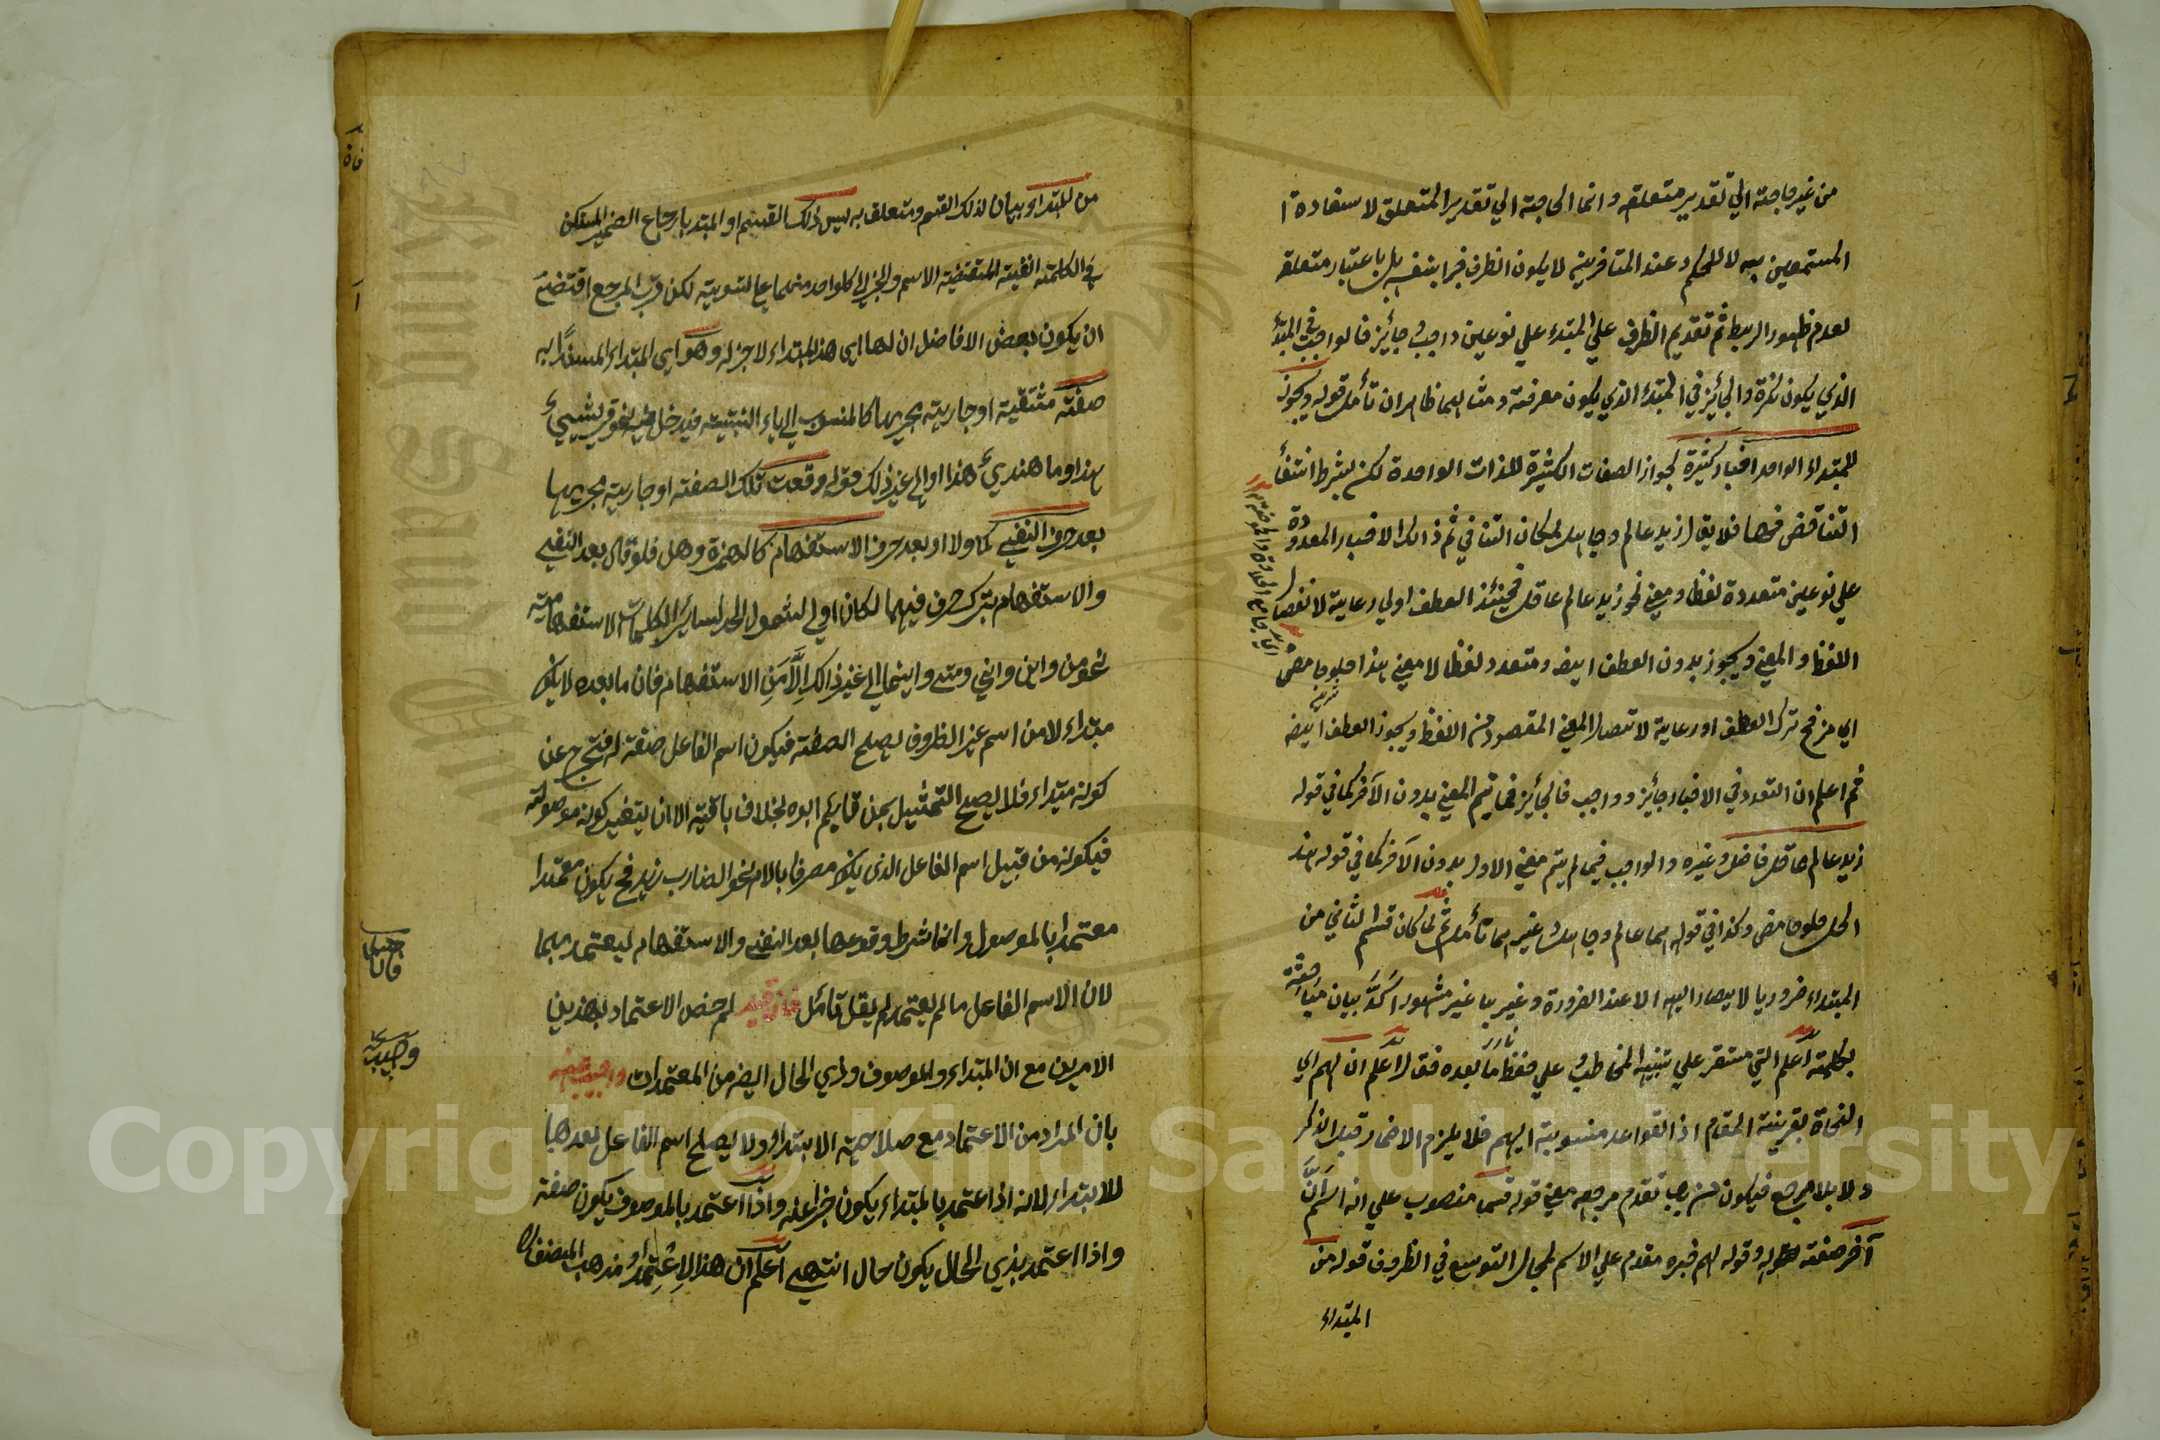 من غير حاجته الي تقدير متعلقه وانما الحاجته الي تقدير المتعلق لاستفادة ا
المستمعين به لا للحكم وعند المتأخرين لا يكون الظرف خبرا بنفسه بل باعتبار متعلقه
لعدم ظهور الربط ثم تقديم الظرف علي المبتدء علي نوعين واجب وجائز فالواجب في المبتدأ
الذي يكون نكرة والجائز في المبتدء الذي يكون معرفته ومثالهما ظاهران تأمل قوله ويجوز
للمبتداء الواحد اخبار كثيرة لجواز الصفات الكثيرة للذات الواحدة لكن بشرط انتفأ
التناقض فيها فلا يقال زيد عالم وجاهل لمكان التنافي ثم ذالك الاخبار المعدودة
علي نوعين متعددة لفظا ومعني نحو زيد عالم عاقل فحينئذ العطف اولي رعاية لانفصال
اللفظ والمعني ويجوز بدون العطف ايضه ومتعدد لفظا لا معني هذا حلو حامض
اي مز فح ترك العطف اورعاية لاتصال المعني المقصود من اللفظ ويجوز العطف ايضه
ثم اعلم ان التعدد في الاخبار جائز وواجب فالجائز فيما يتم المعني بدون الآخر كما في قوله
زيد عالم عاقل فاضل وغيره والواجب فيما لم يتم معني الاول بدون الآخر كما في قوله هذا
الخل حلو حامض وكذا في قولهم هما عالم وجاهل وغيرهما تأمل ثم لما كان قسم الثاني من
المبتداء ضروريا لا يصار اليه الا عند الضرورة وغيربا غير مشهور اكد بيان مباحثته
بكلمته اعلم التي مستقر علي تنبيه المخاطب علي حفظ ما بعده فقال اعلم ان لهم اي
النحاة بقرينة المقام اذ القواعد منسوبته اليهم فلا يلزم الاضمار قبل الذكر
ولا بلا مرجع فيكون من يجب تقدم مرجعه معني قوله قسما منصوب علي انه اسم ان
آخر صفته قوله وقوله لهم خبره مقدم علي الاسم لمجال التوسع في الظروف قوله من
المبتداء
من المبتداء وبيان لذلك القسم ومتعلق به ليس ذلك القسم او المبتدا بارجاع الضمير المستكن
في الكلمته النفية المقتضية الاسم والخبر الي كل واحد منهما علي التسوية لكن قرب المرجع اقتضت
ان يكون بعض الافاضل ان لها اي هذا المبتداء لا خبر له وهو اي المبتداء المسندا به
صفته مشتقية او جارية مجريها كالمنسوب الي ياء النسبته فيدخل فيه نحو قريشيء
هذا وما هنديء هذا او الي غير ذلك قوله وقعت تلك الصفته او جارية مجريها
بعد حرف النفي كما ولا او بعد حرف الاستفهام كالهمزة وهل فلو قال بعد النفي
والاستفهام بترك حرف فيهما لكان اولي لشمول الحد لسائر الكلمات الاستفهامية
نحو من واين واني ومتي واينما الي غير ذالك الا من الاستفهام فان ما بعده لا يكون
مبتداء لا من اسم غير الظروف يصلح الصفته فيكون اسم الفاعل صفته له فتخرج عن
كونه مبتداء فلا يصلح التمثيل بمن قايم ابوه بخلاف باقيه الا ان يتغير كونه موصولته
فيكونه من قبيل اسم الفاعل الذي يكون معرفا بالام نحو الضارب زيد فح يكون معتمدا
معتمدا بالموصول وانما شرط وقوعها بعد النفي والاستفهام ليعتمد بهما
لان الاسم الفاعل ما لم يعتمد لم يقل تأمل فان قيل لم خص الاعتماد بهذين
الامرين مع ان المبتداء والموصوف وذي الحال ايضه من المعتمدات واجيب عنه
بان المراد من الاعتماد مع صلاحية الابتداء ولا يصلح اسم الفاعل بعدها
للابتداء لانه اذا اعتمد بالمبتداء يكون خبرا عنه واذا اعتمد بالموصوف يكون صفته
واذا اعتمد بذي الحال يكون حال انتهي اعلم ان هذا الاعتماد ومذهب المصنف
فان قيل
واجيب